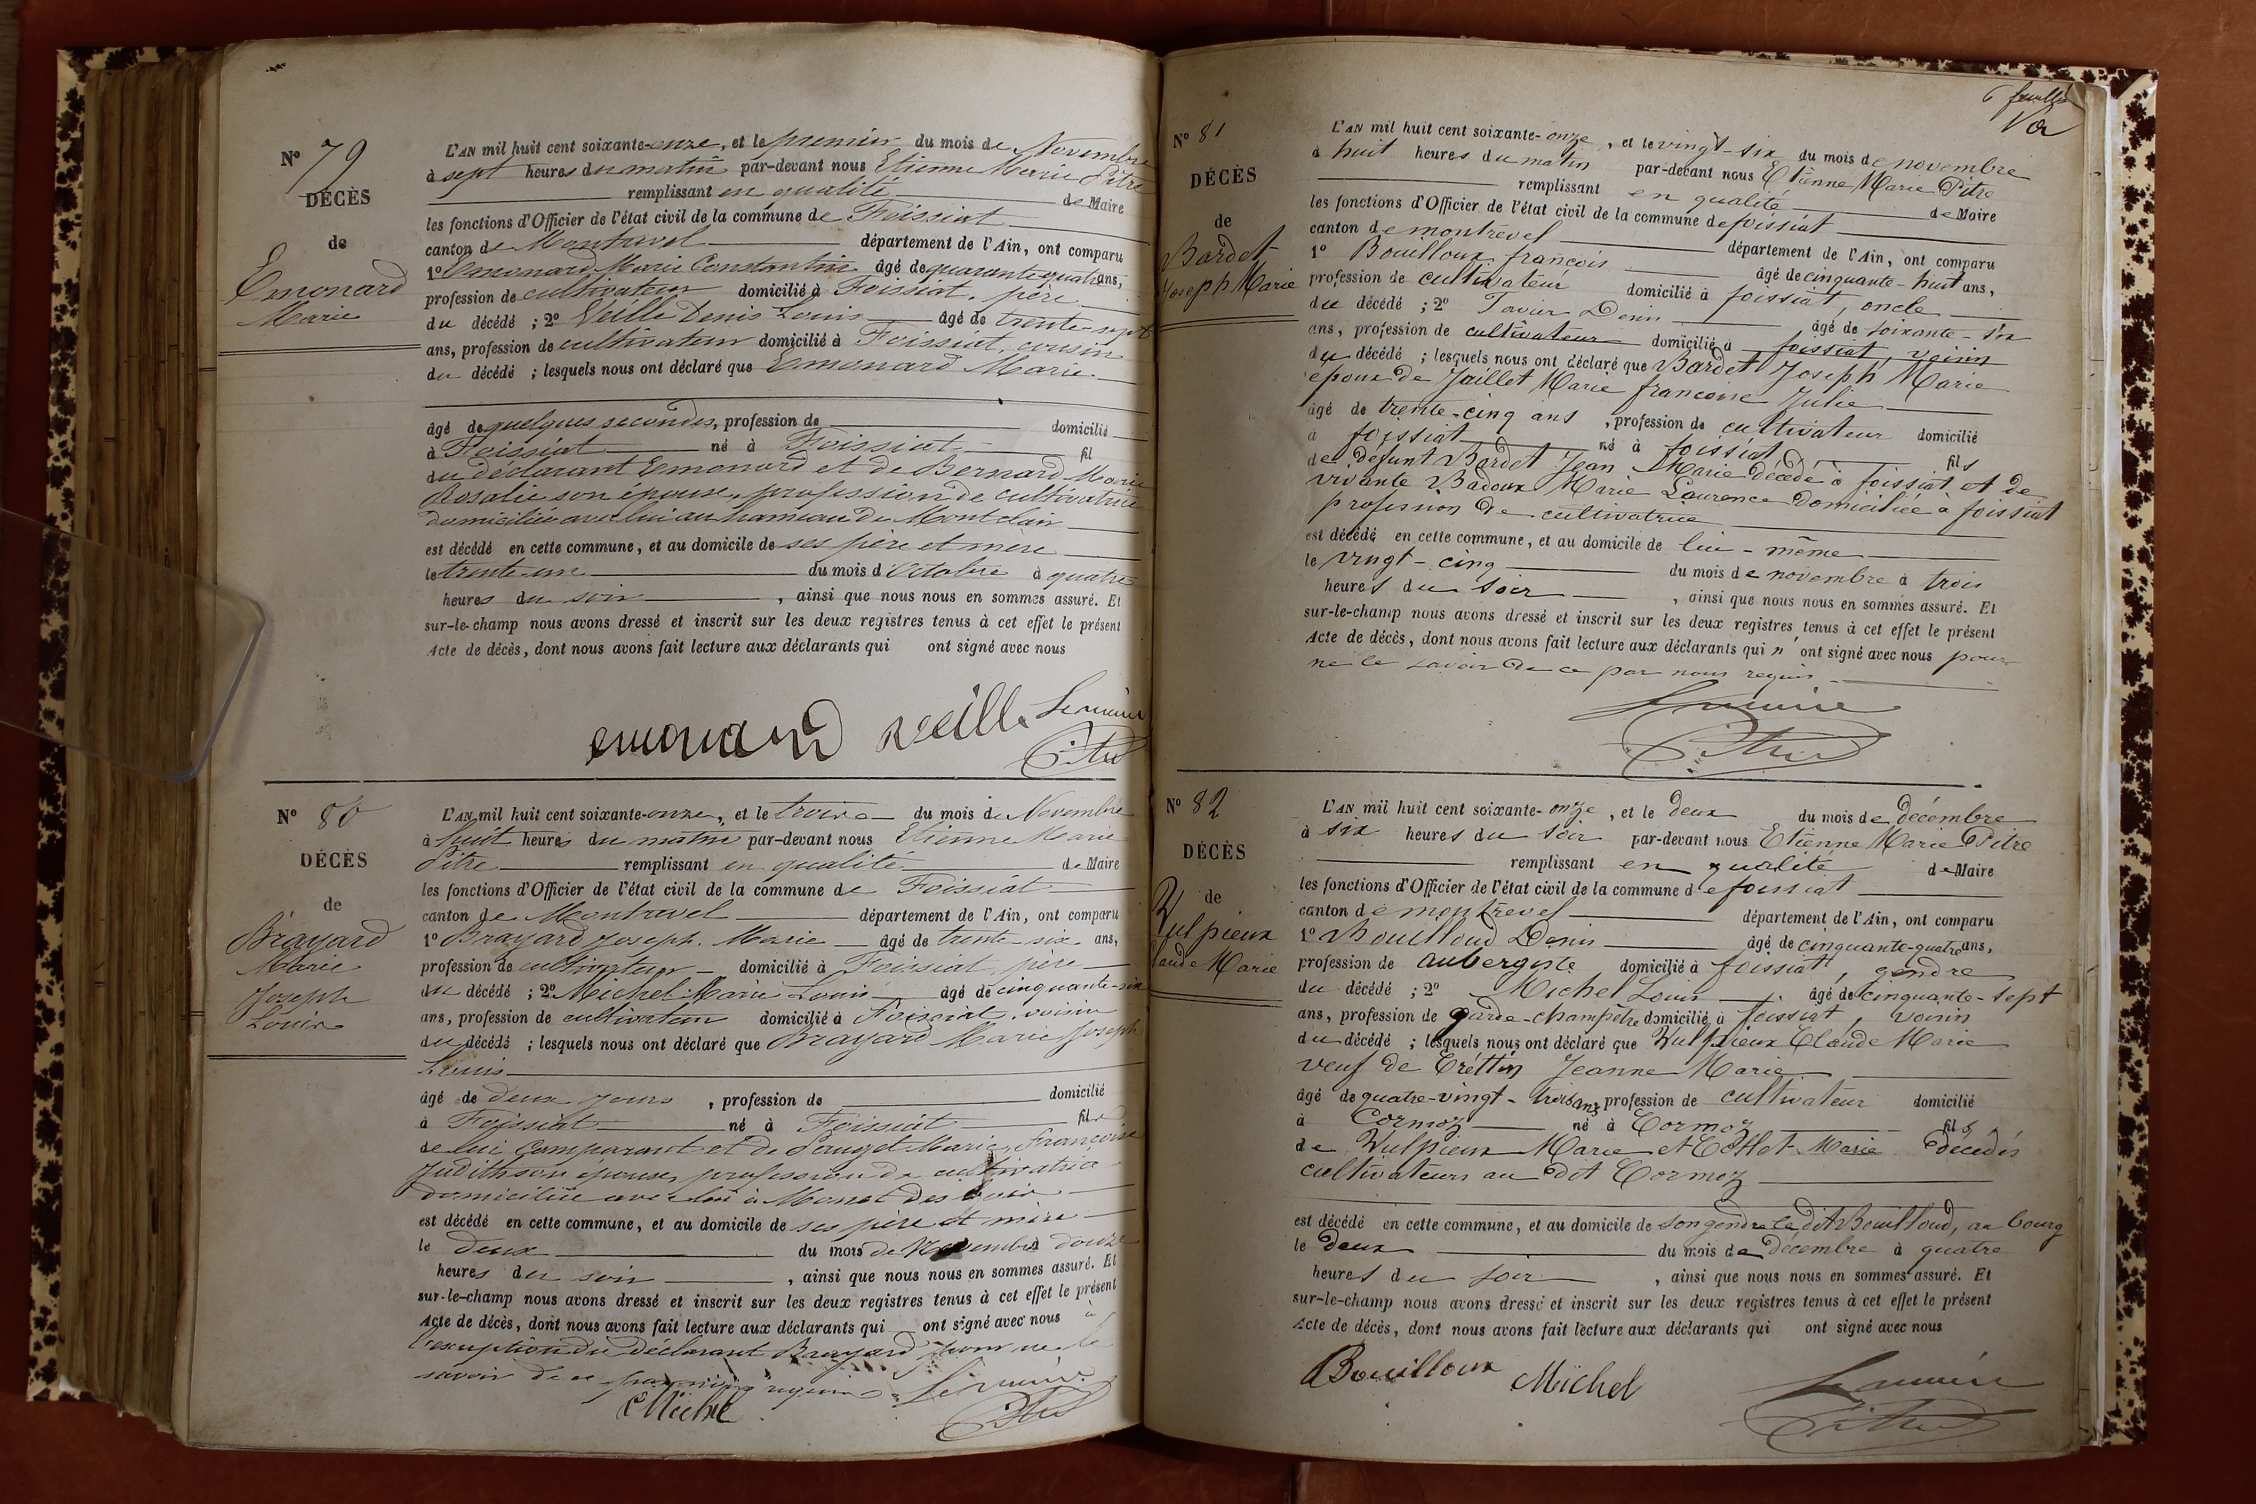 N° 79
DÉCÈS
de
Emonard
Marie
L'AN mil huit cent soixante-onze, et le premier du mois de Novembre
à sept heures du matin par-devant nous Etienne Marie Pitre
remplissant en qualité de Maire
les fonctions d'Officier de l'état civil de la commune de Foissiat
canton de Montrevel département de l'Ain, ont comparu
1° Emonard Marie Constantin âgé de quarante quatre ans,
profession de cultivateur domicilié à Foissiat, père
du décédé ; 2° Veille Denis Louis âgé de trente-sept
ans, profession de cultivateur domicilié à Foissiat, cousin
du décédé ; lesquels nous ont déclaré que Emonard Marie
âgé de quelques secondes, profession de domicilié
à Foissiat né à Foissiat fil
du déclarant Emonard et de Bernard Marie
Rosalie son épouse, profession de cultivatrice
domiciliée avec lui au hameau du Montclair
est décédé en cette commune, et au domicile de ses père et mère
le trente-un du mois d'Octobre à quatre
heures du soir, ainsi que nous nous en sommes assuré. Et
sur-le-champ nous avons dressé et inscrit sur les deux registres tenus à cet effet le présent
Acte de décès, dont nous avons fait lecture aux déclarants qui ont signé avec nous
emonard veille Le maire
Pitre
N° 80
DÉCÈS
de
Brayard
Marie
Joseph
Louis
L'AN mil huit cent soixante-onze, et le trois du mois de Novembre
à huit heures du matin par-devant nous Etienne Marie
Pitre remplissant en qualité de Maire
les fonctions d'Officier de l'état civil de la commune de Foissiat
canton de Montrevel département de l'Ain, ont comparu
1° Brayard Joseph Marie âgé de trente-six ans,
profession de cultivateur domicilié à Foissiat, père
du décédé ; 2° Michel Marie Louis âgé de cinquante-six
ans, profession de cultivateur domicilié à Foissiat, voisin
du décédé ; lesquels nous ont déclaré que Brayard Marie Joseph
Louis
âgé de deux jours, profession de domicilié
à Foissiat né à Foissiat fils
de lui comparant et de Pauget Marie Françoise
Judith son épouse, profession de cultivatrice
domiciliée avec lui à Monet des bois
est décédé en cette commune, et au domicile de ses père et mère
le deux du mois de Novembre à douze
heures du soir, ainsi que nous nous en sommes assuré. Et
sur-le-champ nous avons dressé et inscrit sur les deux registres tenus à cet effet le présent
Acte de décès, dont nous avons fait lecture aux déclarants qui ont signé avec nous à
l'exception du déclarant Brayard pour ne le
savoir de ce par nous requis Le maire
Michel Pitre
6e feuillet
N° 81
DÉCÈS
de
Bardet
Joseph Marie
L'AN mil huit cent soixante-onze, et le vingt-six du mois de novembre
à huit heures du matin par-devant nous Etienne Marie Pitre
remplissant en qualité de Maire
les fonctions d'Officier de l'état civil de la commune de foissiat
canton de montrevel département de l'Ain, ont comparu
1° Bouilloux françois âgé de cinquante-huit ans,
profession de cultivateur domicilié à foissiat, oncle
du décédé ; 2° Tavier Denis âgé de soixante-six
ans, profession de cultivateur domicilié à foissiat, voisin
du décédé ; lesquels nous ont déclaré que Bardet Joseph Marie
époux de Jaillet Marie françoise Julie
âgé de trente-cinq ans, profession de cultivateur domicilié
à foissiat né à foissiat fils
de défunt Bardet Jean Marie décédé à foissiat et de
vivante Badoux Marie Laurence domiciliée à foissiat
profession de cultivatrice
est décédé en cette commune, et au domicile de lui-même
le vingt-cinq du mois de novembre à trois
heures du soir, ainsi que nous nous en sommes assuré. Et
sur-le-champ nous avons dressé et inscrit sur les deux registres tenus à cet effet le présent
Acte de décès, dont nous avons fait lecture aux déclarants qui n'ont signé avec nous pour
ne le savoir de ce par nous requis
Le maire
Pitre
N° 82
DÉCÈS
de
Vulpieux
Claude Marie
L'AN mil huit cent soixante-onze, et le deux du mois de décembre
à six heures du soir par-devant nous Etienne Marie Pitre
remplissant en qualité de Maire
les fonctions d'Officier de l'état civil de la commune de foissiat
canton de montrevel département de l'Ain, ont comparu
1° Bouilloud Denis âgé de cinquante-quatre ans,
profession de aubergiste domicilié à foissiat, gendre
du décédé ; 2° Michel Louis âgé de cinquante-sept
ans, profession de garde-champêtre domicilié à foissiat, voisin
du décédé ; lesquels nous ont déclaré que Vulpieux Claude Marie
veuf de Tréttin Jeanne Marie
âgé de quatre-vingt-trois ans profession de cultivateur domicilié
à Cormoz né à Cormoz fils
de Vulpieux Marie et Cottet Marie décédés
cultivateurs au dit Cormoz
est décédé en cette commune, et au domicile de son gendre le dit Bouilloud, au bourg
le deux du mois de décembre à quatre
heures du soir, ainsi que nous nous en sommes assuré. Et
sur-le-champ nous avons dressé et inscrit sur les deux registres tenus à cet effet le présent
Acte de décès, dont nous avons fait lecture aux déclarants qui ont signé avec nous
Bouilloux Michel Le maire
Pitre